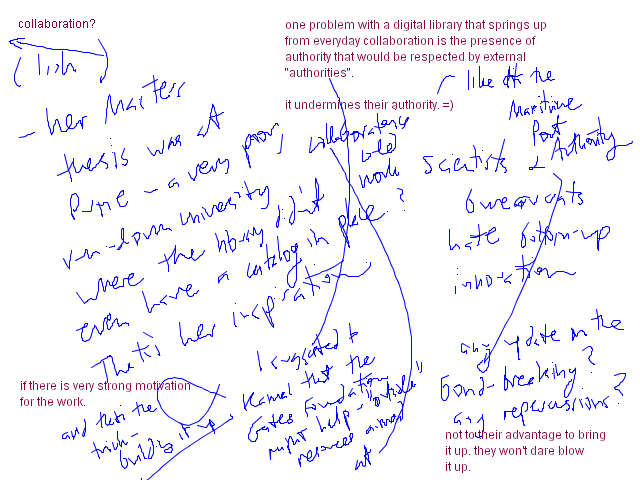 collaboration?
one problem with a digital library that springs up
from everyday collaboration is the presence of
authority that would be respected by external
"authorities".
it undermines their authority. =)
(lish
- her Masters
thesis was at
Pune - a very poor,
run-down university
where the library didn't
even have a catalog in place.
That's her inspiration.
collaborators
would
work
?
- like the
Maritime
Port
Authority
Scientists &
bureaucrats
hate bottom-up
innovation
I suggested to
Kamal that the
Gates Foundation
might help - "outside"
resources aimed
at
any update on the
bond-breaking?
any repercussions?
if there is very strong motivation
for the work.
and that's the
trick -
building it up
not to their advantage to bring
it up. they won't dare blow
it up.